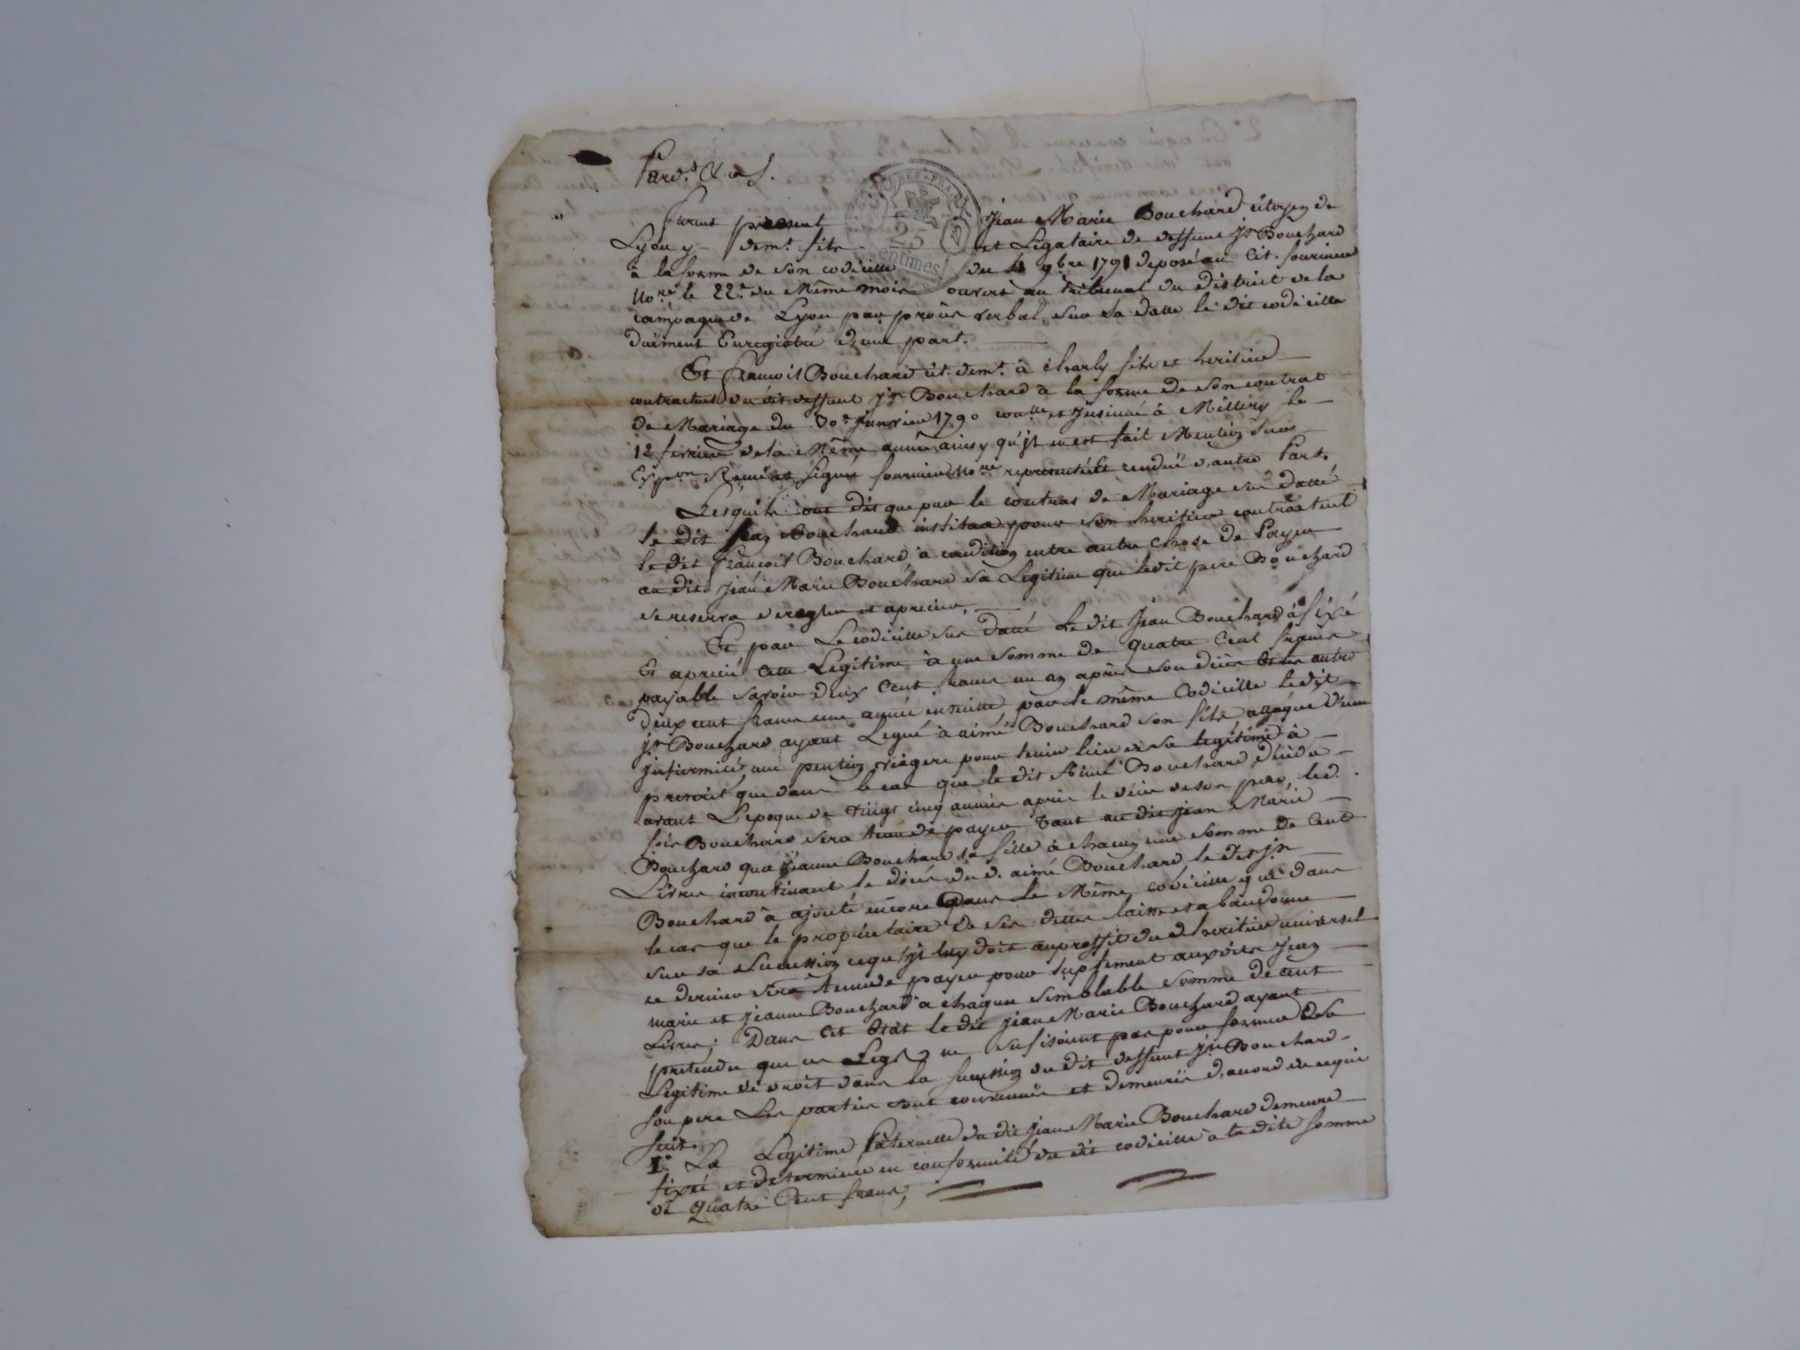 Pard.t
REP. FRA.
25
centimes
Furent present Jean Marie Bouchard citoyen de
Lyon y demt. fils et Legataire de deffunt Jn Bouchard
à la forme de son codicille du 4 9bre 1791 deposé au Cit. fournieu
Nore. le 22e. du Même mois ouvert au tribunal du district de la
campagne de Lyon par procès verbal sur sa datte le dit codicille
duëment Enregistré d'une part.
Et françois Bouchard cit. demt. à charly fils et heritier
contractuel du dit deffunt Jn Bouchard à la forme de son contrat
de Mariage du 30e Janvier 1790 conlle et jnsinué à Millery le
12 fevrier de la Même année ainsy qu'jl en est fait Mention sur
Expon signé fournieu Nore representée et rendüe d'autre Part.
Lesquels ont dit que par le contrat de Mariage sus datté
le dit Jean Bouchard institua pour son heritier contractuel
le dit françois Bouchard à condition entre autre chose de Payer
au dit Jean Marie Bouchard sa Legitime que ledit pere Bouchard
se reserva de regler et aprecier.
Et par Le codicille sus datté Le dit Jean Bouchard à fixé
Et aprecié cette Legitime à une somme de quatre Cent francs
payable savoir deux Cent francs un an après son décès et les autre
deux cent francs une année ensuitte par le même Codicille ledit
Jn Bouchard ayant Legué à aimé Bouchard son fils attaqué d'une
jnfirmité une pention viagere pour tenir lieu de sa legitime à
prevoit que dans le cas que le dit Aimé Bouchard décéda
avant L'epoque de vingt cinq années après le décès de son pere, led.
fois Bouchard sera tenu de payer tant au dit Jean Marie
Bouchard que Jeanne Bouchard sa fille à chacun une somme de Cent
Livres incontinant le décès du d. aimé Bouchard le dit Jn
Bouchard à ajouté encore dans Le Même codicille que dans
le cas que le propriétaire de ses dettes laisse et abandonne
sur sa Succession ce qu'jl luy doit au proffit du d heritier universel
ce dernier sera tenu de payer pour suplement auxdits Jean
marie et Jeanne Bouchard à chaqun semblable somme de cent
Livres; Dans cet Etat le dit Jean Marie Bouchard ayant
pretendu que ces Legs ne sufisoient pas pour former Sa
Legitime de droit dans la succession du dit deffunt Jn Bouchard
son pere Les parties sont convenuës et demeurées d'acord de ce qui
suit.
1.° La Legitime Paternelle du dit Jean Marie Bouchard demeure
fixée et determinée en conformité du dit codicille à la dite somme
de quatre Cent francs,